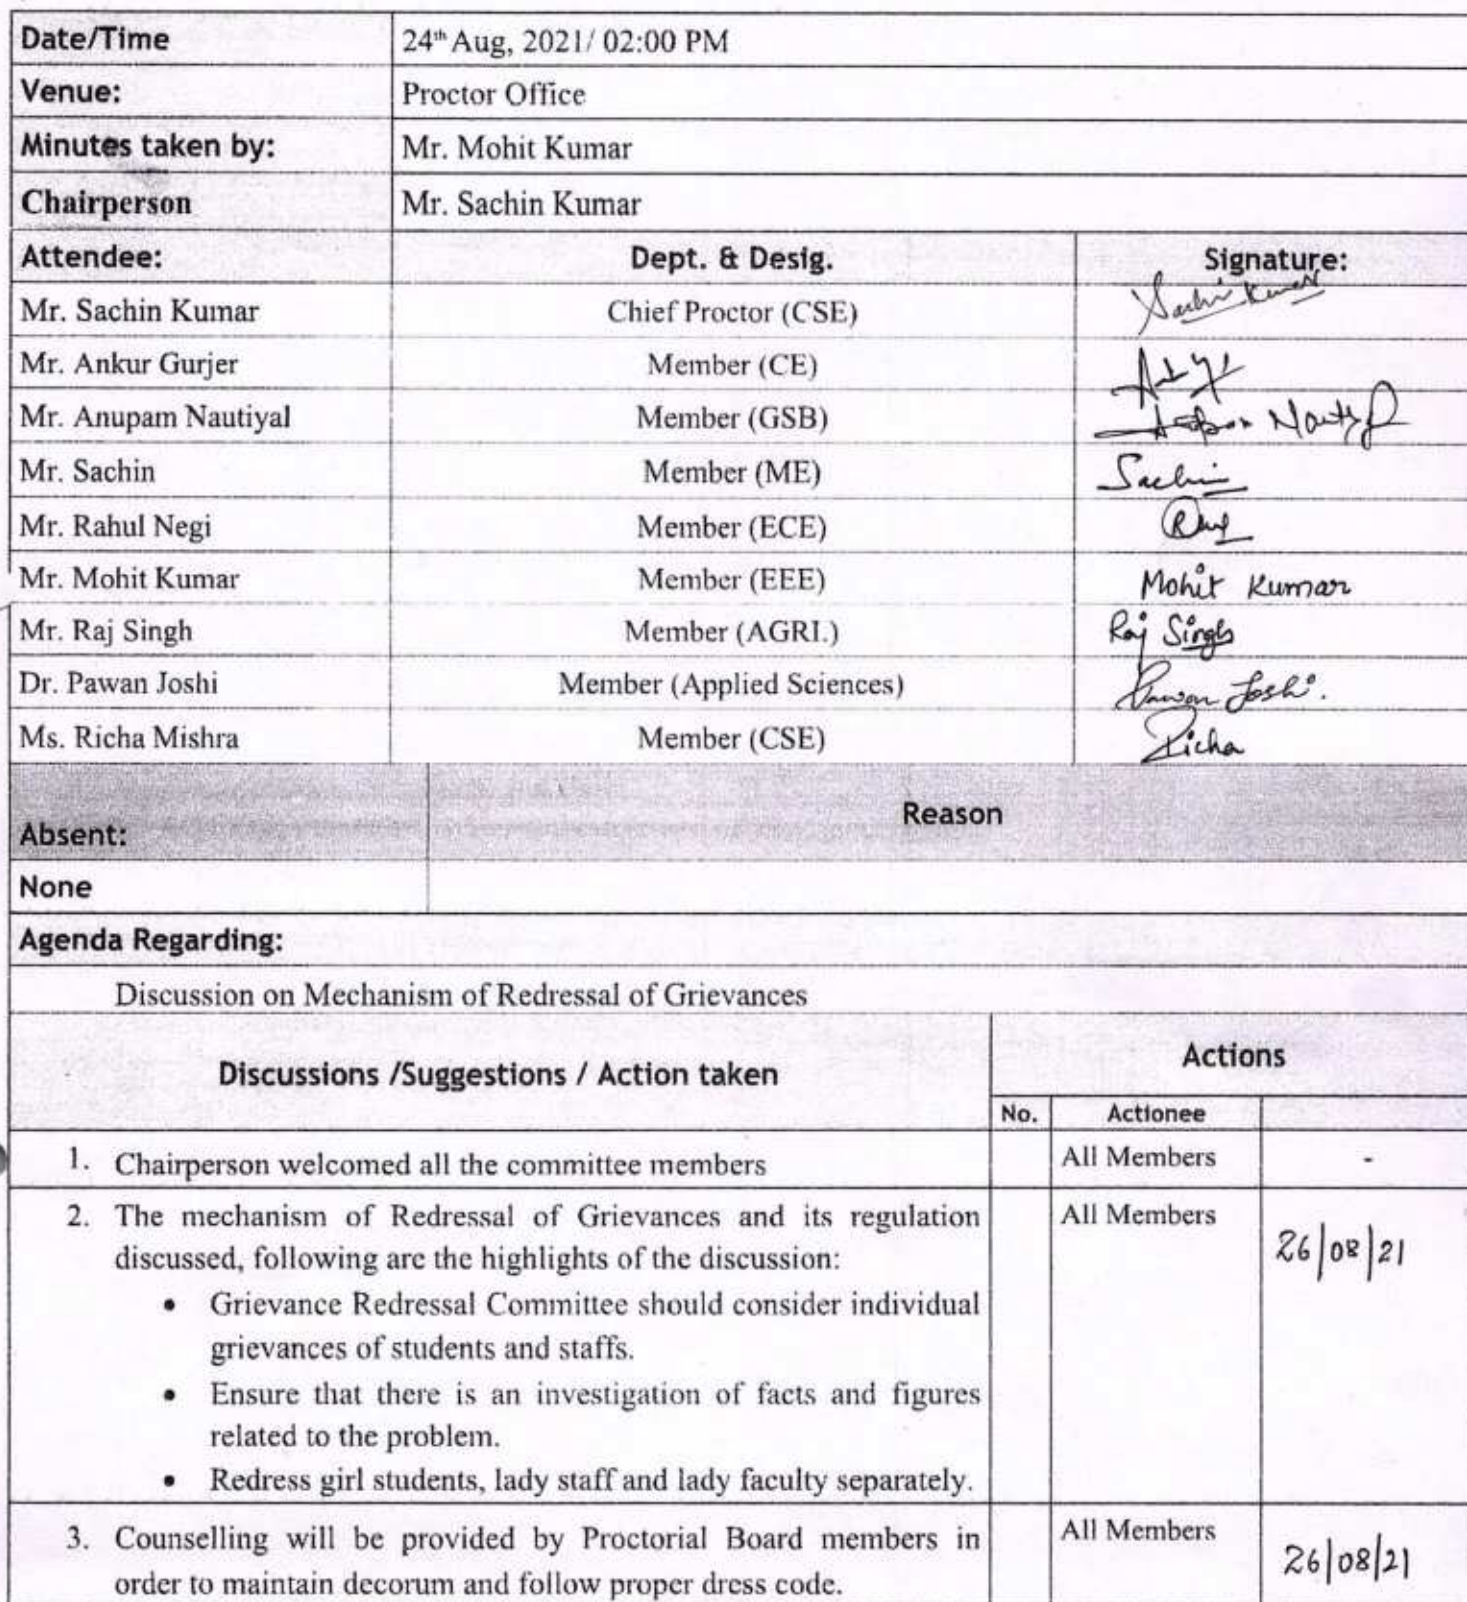 Date/Time 24th Aug, 2021/ 02:00 PM
Venue: Proctor Office
Minutes taken by: Mr. Mohit Kumar
Chairperson Mr. Sachin Kumar
Attendee: Dept. & Desig. Signature:
Mr. Sachin Kumar Chief Proctor (CSE) Sachin Kumar
Mr. Ankur Gurjer Member (CE)
Mr. Anupam Nautiyal Member (GSB)
Mr. Sachin Member (ME) Sachin
Mr. Rahul Negi Member (ECE)
Mr. Mohit Kumar Member (EEE) Mohit Kumar
Mr. Raj Singh Member (AGRI.) Raj Singh
Dr. Pawan Joshi Member (Applied Sciences) Pawan Joshi.
Ms. Richa Mishra Member (CSE) Richa
Reason
Absent:
None
Agenda Regarding:
Discussion on Mechanism of Redressal of Grievances
Discussions /Suggestions / Action taken Actions
No. Actionee
1. Chairperson welcomed all the committee members All Members -
2. The mechanism of Redressal of Grievances and its regulation All Members
discussed, following are the highlights of the discussion: 26/08/21
• Grievance Redressal Committee should consider individual
grievances of students and staffs.
• Ensure that there is an investigation of facts and figures
related to the problem.
• Redress girl students, lady staff and lady faculty separately.
3. Counselling will be provided by Proctorial Board members in All Members
order to maintain decorum and follow proper dress code. 26/08/21